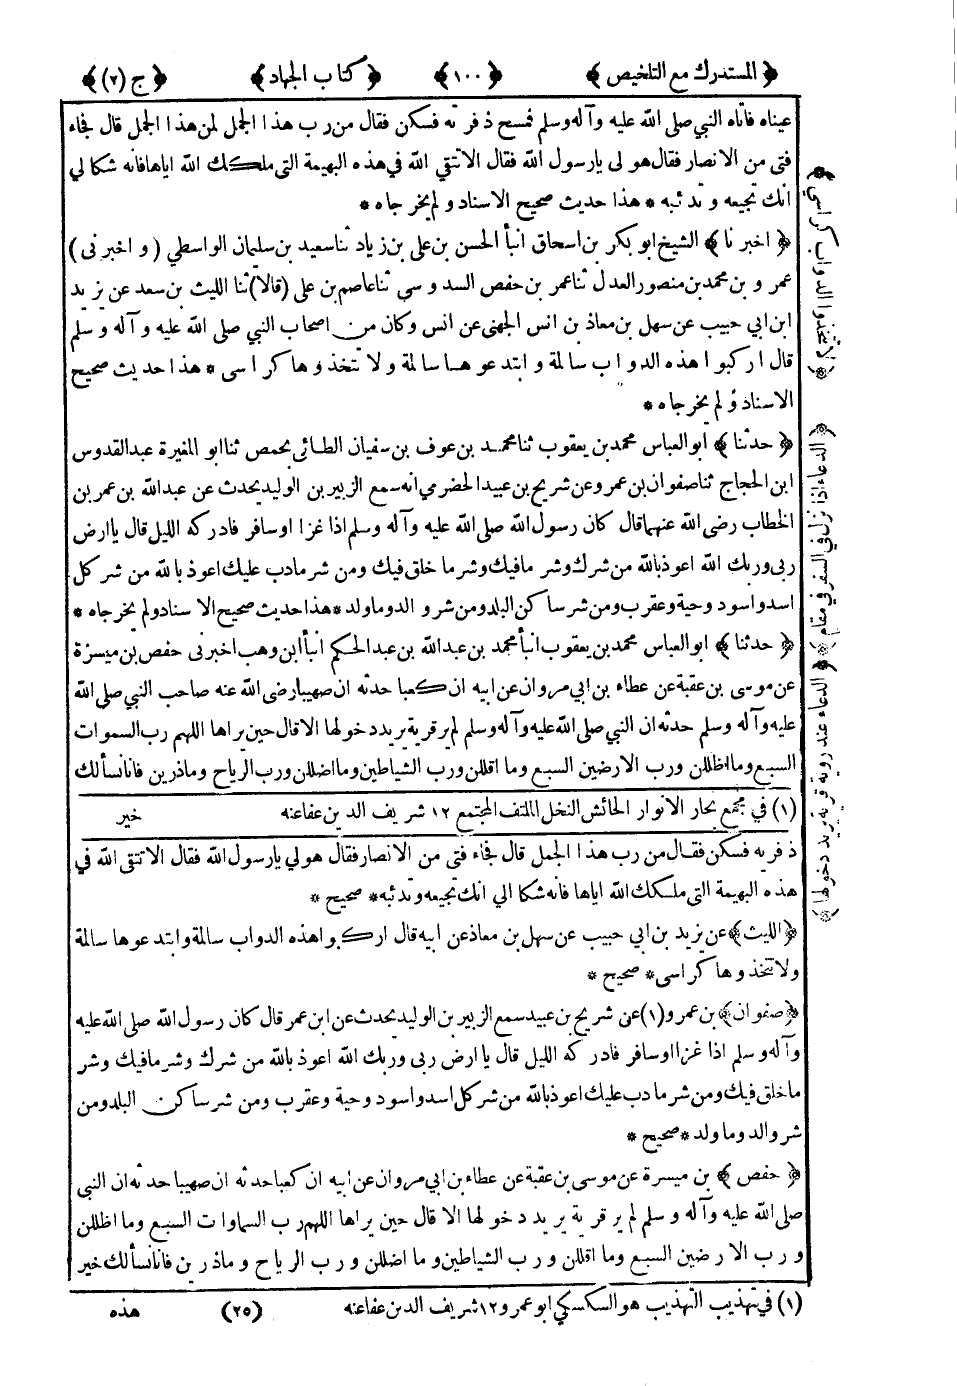 ﴿المستدرك مع التلخيص﴾ ﴿١٠٠﴾ ﴿كتاب الجهاد﴾ ﴿ج (٢)﴾
عيناه فاتاه النبي صلى الله عليه وآله وسلم فمسح ذفرته فسكن فقال من رب هذا الجمل لمن هذا الجمل قال فجاء
فتى من الانصار فقال هو لى يارسول الله فقال الا تتقى الله في هذه البهيمة التى ملكك الله اياها فانه شكا لي
انك تجيعه وتدئبه * هذا حديث صحيح الاسناد ولم يخرجاه *
﴿اخبرنا﴾ الشيخ ابو بكر بن اسحاق انبأ الحسن بن على بن زياد ثنا سعيد بن سليمان الواسطي (واخبرنى)
عمرو بن محمد بن منصور العدل ثنا عمر بن حفص السدوسى ثنا عاصم بن على (قالا) ثنا الليث بن سعد عن يزيد
ابن ابي حبيب عن سهل بن معاذ بن انس الجهنى عن انس وكان من اصحاب النبي صلى الله عليه وآله وسلم
قال اركبوا هذه الدواب سالمة وابتدعوها سالمة ولا تتخذوها كراسى * هذا حديث صحيح
الاسناد ولم يخرجاه *
﴿حدثنا﴾ ابو العباس محمد بن يعقوب ثنا محمد بن عوف بن سفيان الطائى بحمص ثنا ابو المغيرة عبد القدوس
ابن الحجاج ثنا صفوان بن عمرو عن شريح بن عبيد الحضرمي انه سمع الزبير بن الوليد يحدث عن عبد الله بن عمر بن
الخطاب رضى الله عنهما قال كان رسول الله صلى الله عليه وآله وسلم اذا غزا او سافر فادركه الليل قال يا ارض
ربى وربك الله اعوذ بالله من شرك وشر ما فيك وشر ما خلق فيك ومن شر ما دب عليك اعوذ بالله من شر كل
اسد واسود وحية وعقرب ومن شر ساكن البلد ومن شر والد وما ولد * هذا حديث صحيح الاسناد ولم يخرجاه *
﴿حدثنا﴾ ابو العباس محمد بن يعقوب انبأ محمد بن عبد الله بن عبد الحكم انبأ ابن وهب اخبرنى حفص بن ميسرة
عن موسى بن عقبة عن عطاء بن ابي مروان عن ابيه ان كعبا حدثه ان صهيبا رضى الله عنه صاحب النبي صلى الله
عليه وآله وسلم حدثه ان النبي صلى الله عليه وآله وسلم لم ير قرية يريد دخولها الا قال حين يراها اللهم رب السموات
السبع وما اظللن ورب الارضين السبع وما اقللن ورب الشياطين وما اضللن ورب الرياح وما ذرين فانا نسألك
(١) في مجمع بحار الانوار الحائش النخل الملتف المجتمع ١٢ شريف الدين عفا عنه خير
ذفريه فسكن فقال من رب هذا الجمل قال فجاء فتى من الانصار فقال هو لي يارسول الله فقال الا تتقى الله في
هذه البهيمة التى ملكك الله اياها فانه شكا الي انك تجيعه وتدئبه * صحيح *
﴿الليث﴾ عن يزيد بن ابي حبيب عن سهل بن معاذ عن ابيه قال اركبوا هذه الدواب سالمة وابتدعوها سالمة
ولا تتخذوها كراسى * صحيح *
﴿صفوان﴾ بن عمرو (١) عن شريح بن عبيد سمع الزبير بن الوليد يحدث عن ابن عمر قال كان رسول الله صلى الله عليه
وآله وسلم اذا غزا او سافر فادركه الليل قال يا ارض ربى وربك الله اعوذ بالله من شرك وشر ما فيك وشر
ما خلق فيك ومن شر ما دب عليك اعوذ بالله من شر كل اسد واسود وحية وعقرب ومن شر ساكن البلد ومن
شر والد وما ولد * صحيح *
﴿حفص﴾ بن ميسرة عن موسى بن عقبة عن عطاء بن ابي مروان عن ابيه ان كعبا حدثه ان صهيبا حدثه ان النبي
صلى الله عليه وآله وسلم لم ير قرية يريد دخولها الا قال حين يراها اللهم رب السماوات السبع وما اظللن
ورب الارضين السبع وما اقللن ورب الشياطين وما اضللن ورب الرياح وما ذرين فانا نسألك خير
(١) في تهذيب التهذيب هو السكسكي ابو عمرو ١٢ شريف الدين عفا عنه (٢٥) هذه
﴿لا تتخذوا الدواب كراسي﴾
﴿الدعاء اذا نزل في السفر في مقام﴾
﴿الدعاء عند روية قرية يريد دخولها﴾